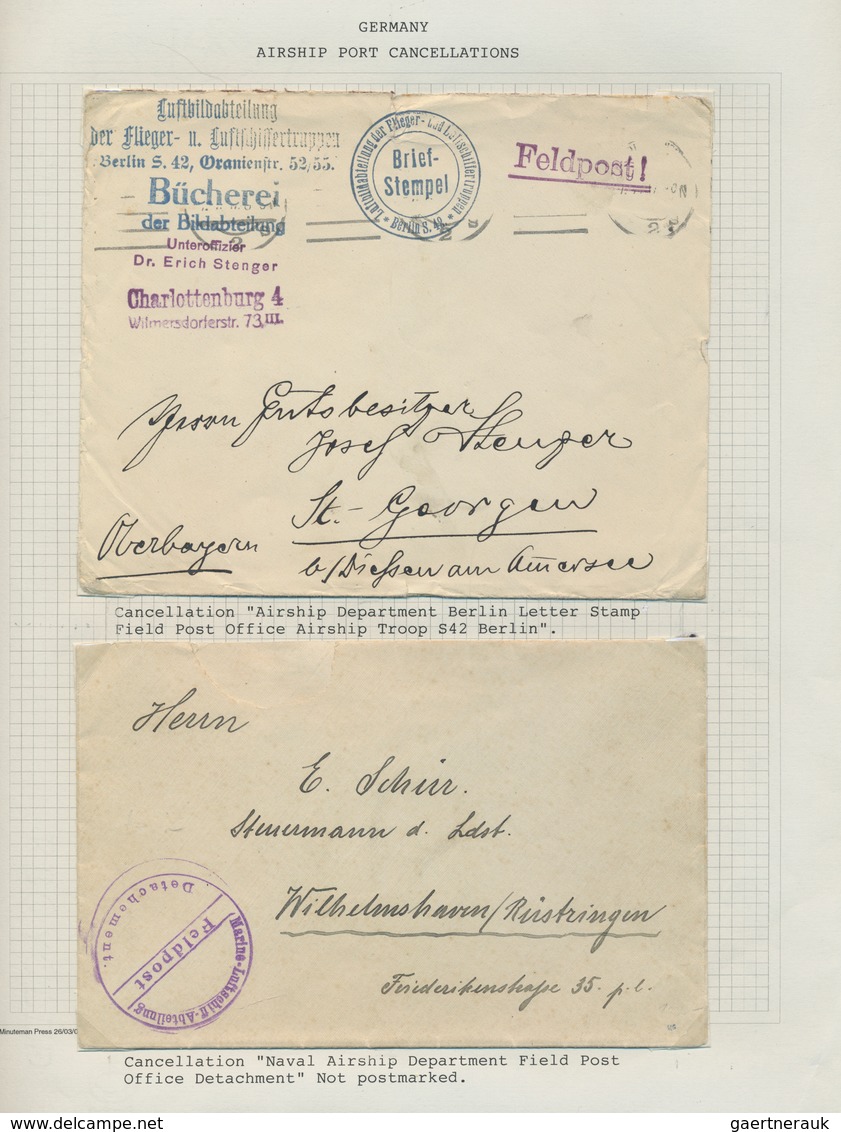 GERMANY
AIRSHIP PORT CANCELLATIONS
Luftbildabteilung
der Flieger- u. Luftschiffertruppen
Berlin S. 42, Oranienstr. 52/55.
Bücherei
der Bildabteilung
Unteroffizier
Dr. Erich Stenger
Charlottenburg 4
Wilmersdorferstr. 73, III.
Luftbildabteilung der Flieger- und Luftschiffertruppen
* Berlin S. 42. *
Brief-
Stempel
Feldpost!
Herrn Gutsbesitzer
Josef Stenger
St.- Georgen
Oberbayern
b/Diessen am Ammersee
Cancellation "Airship Department Berlin Letter Stamp
Field Post Office Airship Troop S42 Berlin".
Herrn
E. Schür.
Steuermann d. Ldst.
Wilhelmshaven/Rüstringen
Friederikenstraße 35. p.l.
Marine-Luftschiff-Abteilung
Feldpost
Detachement.
Minuteman Press 26/03/0
Cancellation "Naval Airship Department Field Post
Office Detachment" Not postmarked.
gaertnerauk